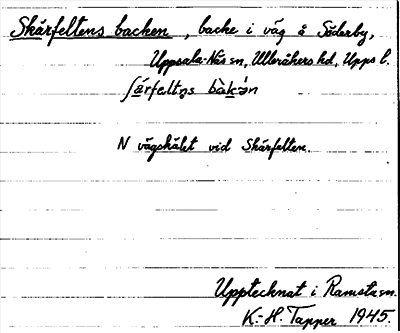 Skärfeltens backen, backe i väg å Söderby,
Uppsala-Näs sn, Ulleråkers hd, Upps l.
ʃä̀rfeltn̥s bàkən
N vägskälet vid Skärfelten.
Upptecknat i Ramsta sn.
K.-H. Tapper 1945.